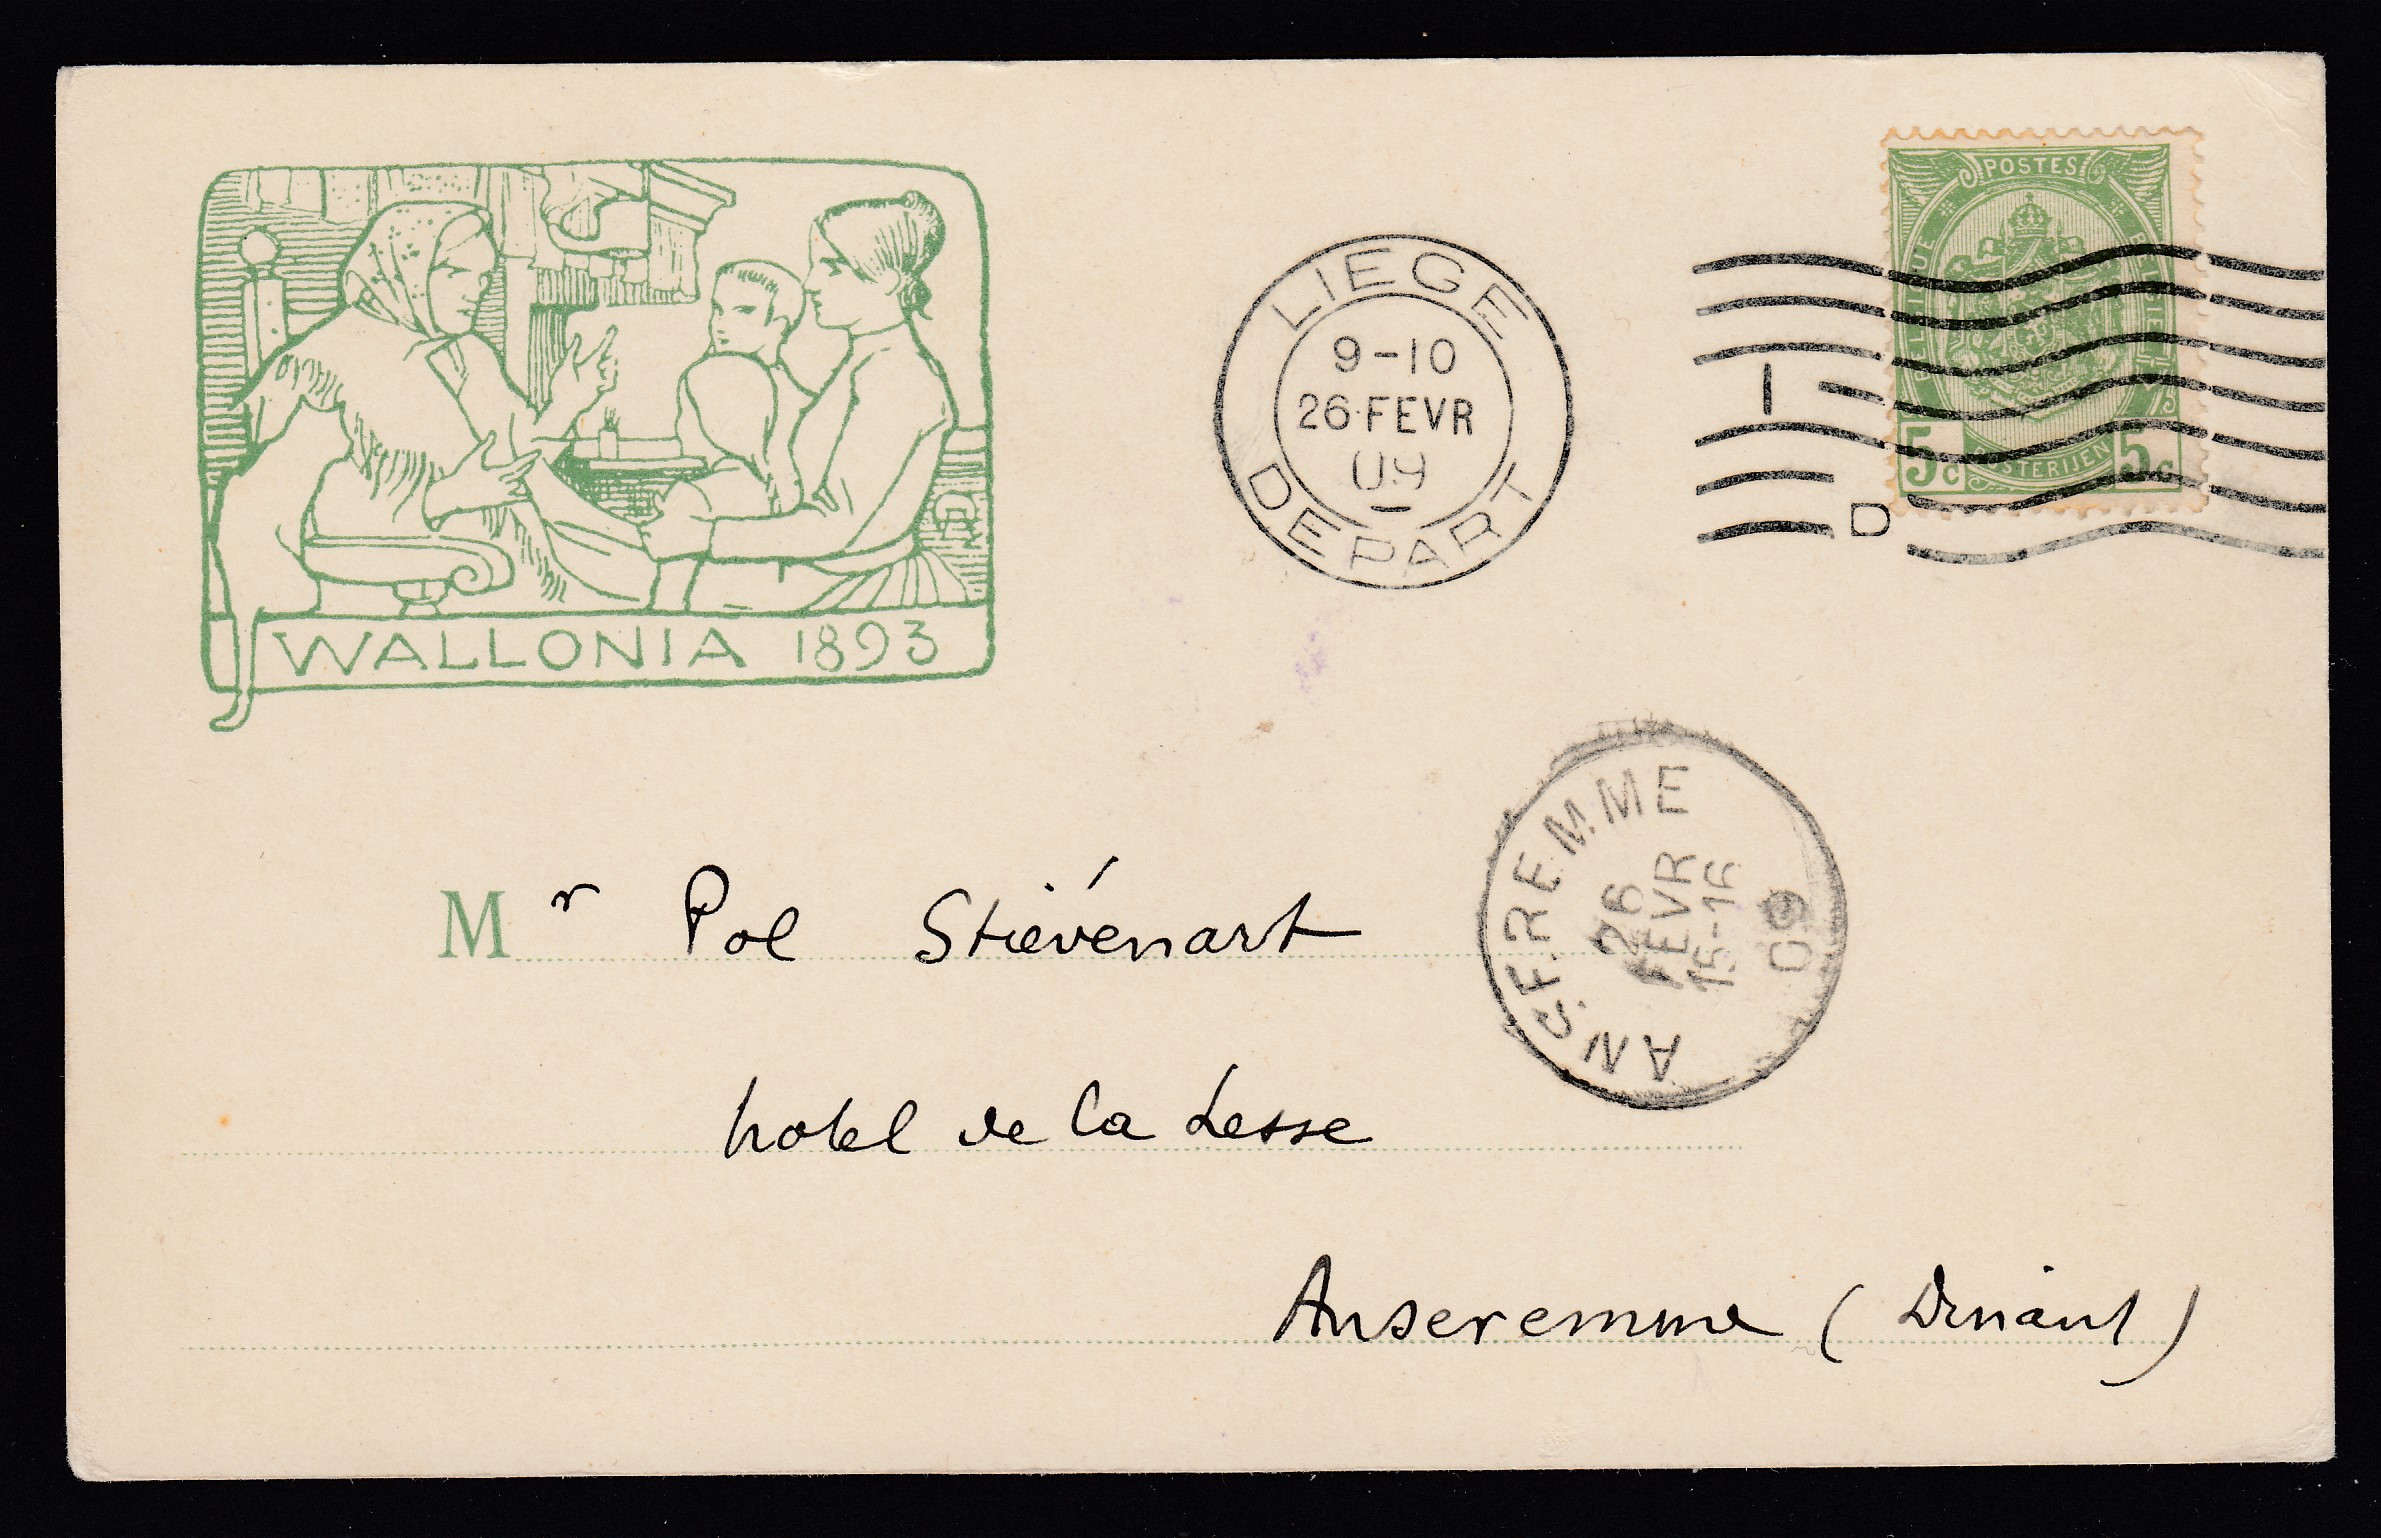 WALLONIA 1893
LIEGE
9-10
26 FEVR
09
DEPART
POSTES
BELGIQUE
BELGIË
5c POSTERIJEN 5c
I
D
ANSEREMME
26
FEVR
15-16
09
Mr Pol Stiévenart
hotel de la Lesse
Anseremme (Dinant)